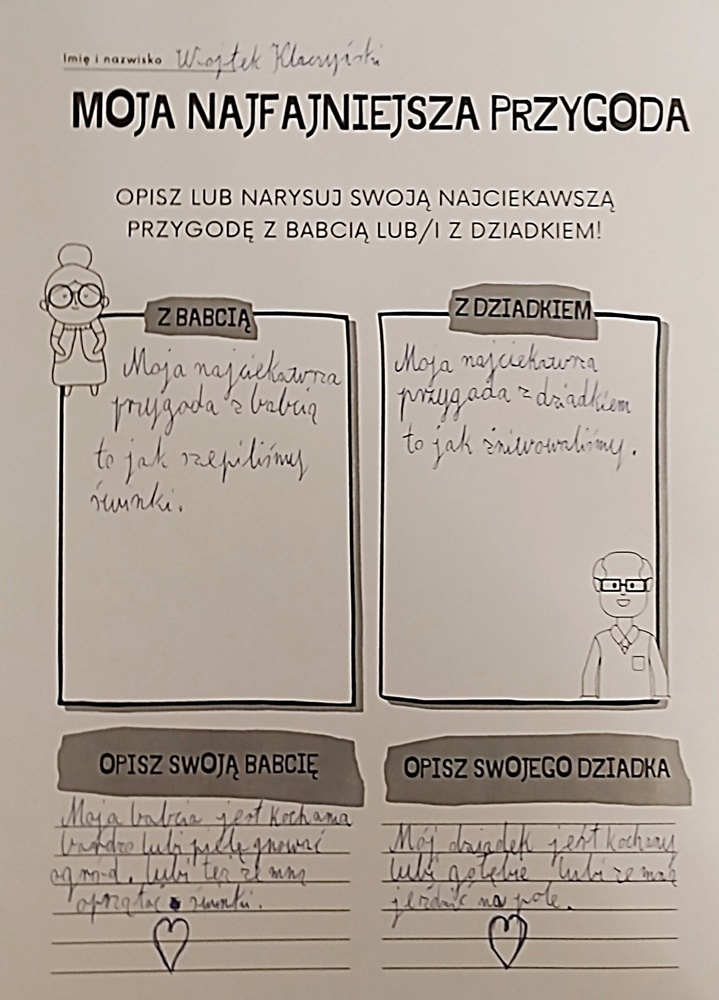 Imię i nazwisko Wojtek Klaczyński
MOJA NAJFAJNIEJSZA PRZYGODA
OPISZ LUB NARYSUJ SWOJĄ NAJCIEKAWSZĄ
PRZYGODĘ Z BABCIĄ LUB/I Z DZIADKIEM!
Z BABCIĄ
Moja najciekawsza
przygoda z babcią
to jak szepiliśmy
świnki.
Z DZIADKIEM
Moja najciekawsza
przygada z dziadkiem
to jak żniwowaliśmy.
OPISZ SWOJĄ BABCIĘ
Moja babcia jest kochana
bardzo lubi pielęgnować
ogród. lubi też ze mną
oprzątać świnki.
OPISZ SWOJEGO DZIADKA
Mój dziadek jest kochany
lubi gołębie lubi ze mną
jeździć na pole.